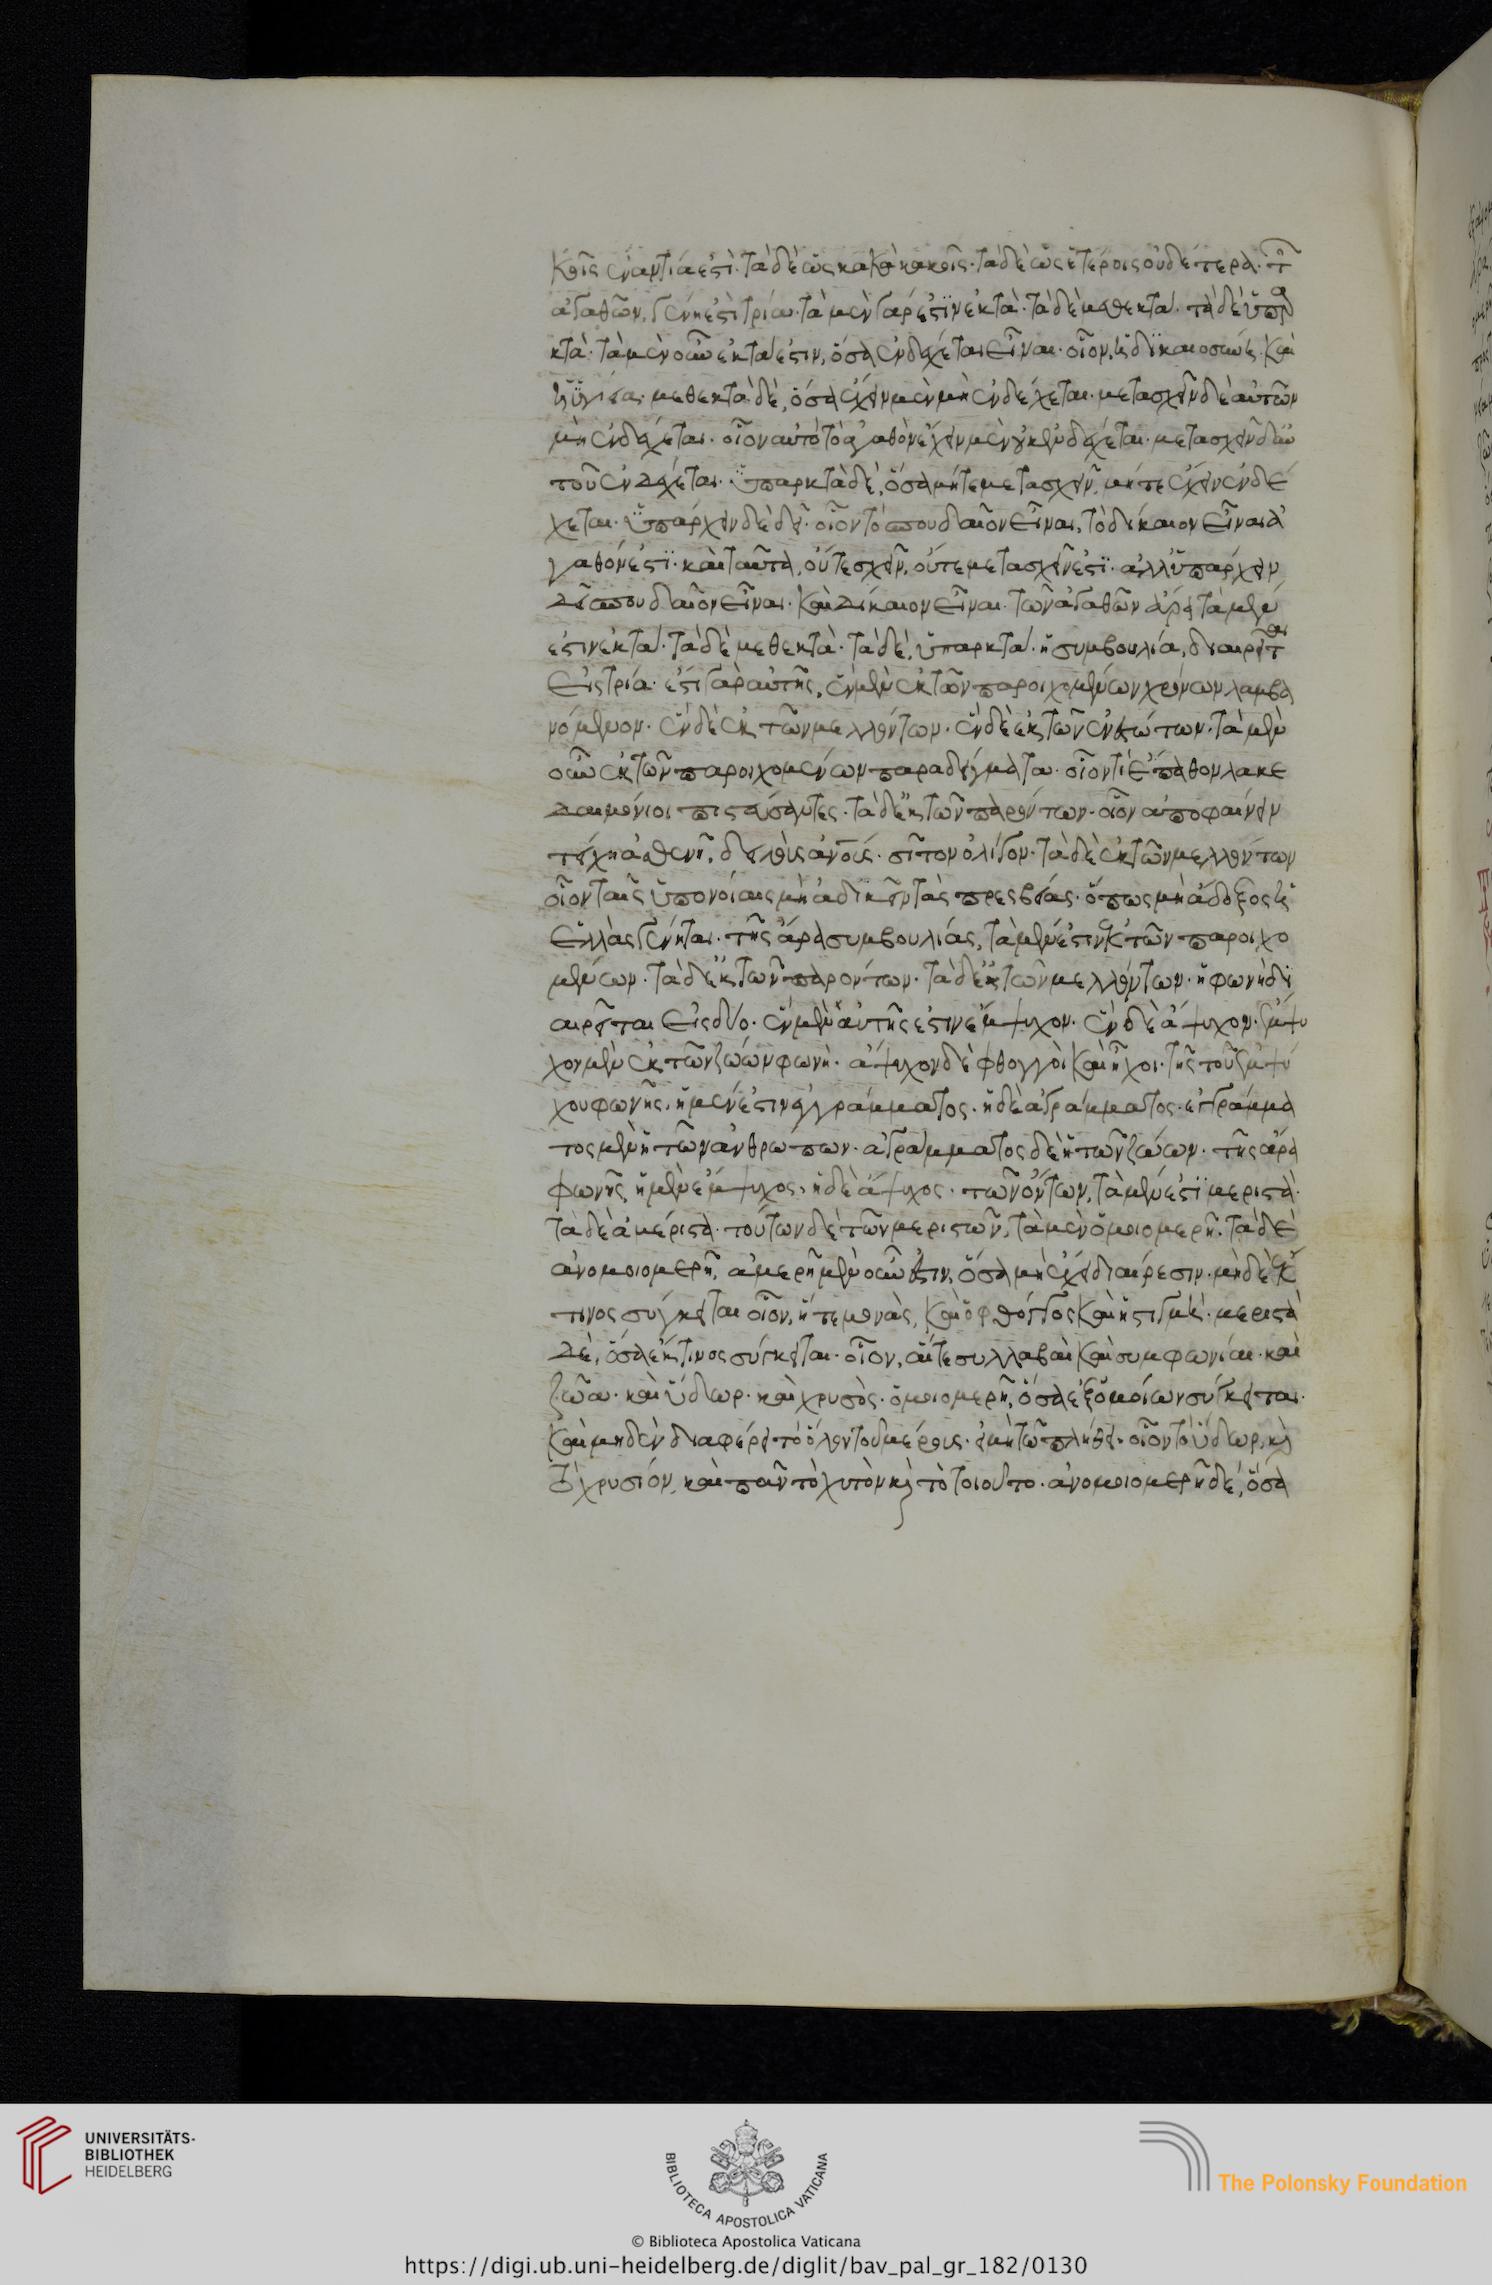 κοῖς ἐναντία ἐστί· τὰ δὲ ὡς κακὰ κακοῖς· τὰ δὲ ὡς ἑτέροις οὐδέτερα· τ
ἀγαθῶν, γένη ἐστὶ τρία· τὰ μὲν γάρ ἐστιν ἑκτά· τὰ δὲ μεθεκτά· τὰ δὲ ὑπαρ
κτά· τὰ μὲν οὖν ἑκτά ἐστιν, ὅσα ἐνδέχεται εἶναι· οἷον, ἡ δικαιοσύνη· καὶ
ἡ ὑγίεια· μεθεκτὰ δέ, ὅσα ἔχειν μὲν μὴ ἐνδέχεται· μετασχεῖν δὲ αὐτῶν
μὴ ἐνδέχεται· οἷον αὐτὸ τὸ ἀγαθὸν ἔχειν μὲν οὐκ ἐνδέχεται· μετασχεῖν δὲ αὐ
τοῦ ἐνδέχεται· ὑπαρκτὰ δέ, ὅσα μήτε μετασχεῖν, μήτε ἔχειν ἐνδέ
χεται· ὑπάρχειν δὲ δεῖ· οἷον τὸ σπουδαῖον εἶναι, τὸ δίκαιον εἶναι ἀ
γαθόν ἐστι· καὶ ταῦτα, οὔτε σχεῖν, οὔτε μετασχεῖν ἐστι· ἀλλ' ὑπάρχειν
δεῖ σπουδαῖον εἶναι· καὶ δίκαιον εἶναι· τῶν ἀγαθῶν ἄρα τὰ μὲν
ἐστιν ἑκτά· τὰ δὲ μεθεκτά· τὰ δὲ, ὑπαρκτά· ἡ συμβουλία, διαιρεῖται
εἰς τρία· ἔστι γὰρ αὐτῆς, ἓν μὲν ἐκ τῶν παροιχομένων χρόνων λαμβα
νόμενον· ἓν δὲ ἐκ τῶν μελλόντων· ἓν δὲ ἐκ τῶν ἐνεστώτων· τὰ μὲν
οὖν ἐκ τῶν παροιχομένων παραδείγματα· οἷον τί ἔπαθον λακε
δαιμόνιοι πιστεύσαντες· τὰ δ' ἐκ τῶν παρόντων· οἷον ἀποφαίνειν
τείχη ἀσθενῆ, δειλοὺς ἀνους· σῖτον ὀλίγον· τὰ δὲ ἐκ τῶν μελλόντων
οἷον ταῖς ὑπονοίαις μὴ ἀδικεῖν τὰς πρεσβείας· ὅπως μὴ ἄδοξος ἡ
ἑλλὰς γένηται· τῆς ἄρα συμβουλίας, τὰ μέν ἐστιν ἐκ τῶν παροιχο
μένων· τὰ δ' ἐκ τῶν παρόντων· τὰ δ' ἐκ τῶν μελλόντων· ἡ φωνὴ δι
αιρεῖται εἰς δύο· ἓν μὲν αὐτῆς ἐστιν ἔμψυχον· ἓν δὲ ἄψυχον· ἔμψυ
χον μὲν ἐκ τῶν ζώων φωνή· ἄψυχον δὲ φθογγοὶ καὶ ἦχοι· τῆς τοῦ ἐμψύ
χου φωνῆς, ἡ μέν ἐστιν ἐγγράμματος· ἡ δὲ ἀγράμματος· ἐγγράμμα
τος μὲν ἡ τῶν ἀνθρώπων· ἀγράμματος δὲ ἡ τῶν ζώων· τῆς ἄρα
φωνῆς, ἡ μὲν ἔμψυχος, ἡ δὲ ἄψυχος· τῶν ὄντων, τὰ μέν ἐστι μεριστά·
τὰ δὲ ἀμέριστα· τούτων δὲ τῶν μεριστῶν, τὰ μὲν ὁμοιομερῆ· τὰ δὲ
ἀνομοιομερῆ, ἀμερῆ μὲν οὖν ἐστιν, ὅσα μὴ ἔχει διαίρεσιν· μὴ δὲ ἔκ
τινος σύγκειται οἷον, ἥ τε μονὰς, καὶ ὁ φθόγγος καὶ ἡ στιγμή· μεριστὰ
δέ, ὅσα ἔκ τινος σύγκειται· οἷον, αἵ τε συλλαβαὶ καὶ συμφωνίαι· καὶ
ζῶα· καὶ ὕδωρ· καὶ χρυσός· ὁμοιομερῆ, ὅσα ἐξ ὁμοίων σύγκειται·
καὶ μηδὲν διαφέρει τὸ ὅλον τοῦ μέρους· εἰ μὴ τῷ πλήθει· οἷον τὸ ὕδωρ, κ
τὸ χρυσίον, καὶ πᾶν τὸ χυτὸν κ τὸ τοιοῦτο· ἀνομοιομερῆ δέ, ὅσα
UNIVERSITÄTS-
BIBLIOTHEK
HEIDELBERG
BIBLIOTECA APOSTOLICA VATICANA
The Polonsky Foundation
© Biblioteca Apostolica Vaticana
https://digi.ub.uni-heidelberg.de/diglit/bav_pal_gr_182/0130